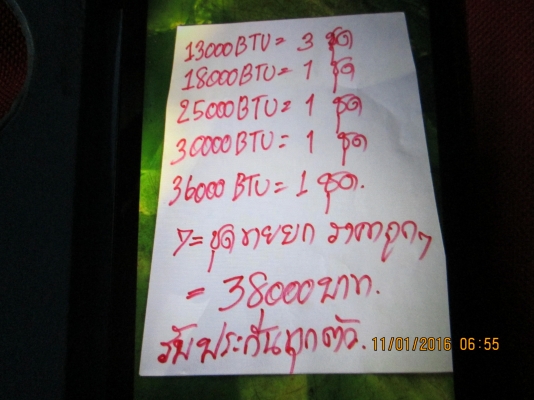 13000BTU = 3 ชุด
18000BTU = 1 ชุด
25000BTU = 1 ชุด
30000BTU = 1 ชุด
36000BTU = 1 ชุด.
7 = ชุด ขายยก ราคาถูกๆ
= 38000บาท.
รับประกันทุกตัว.
11/01/2016 06:55